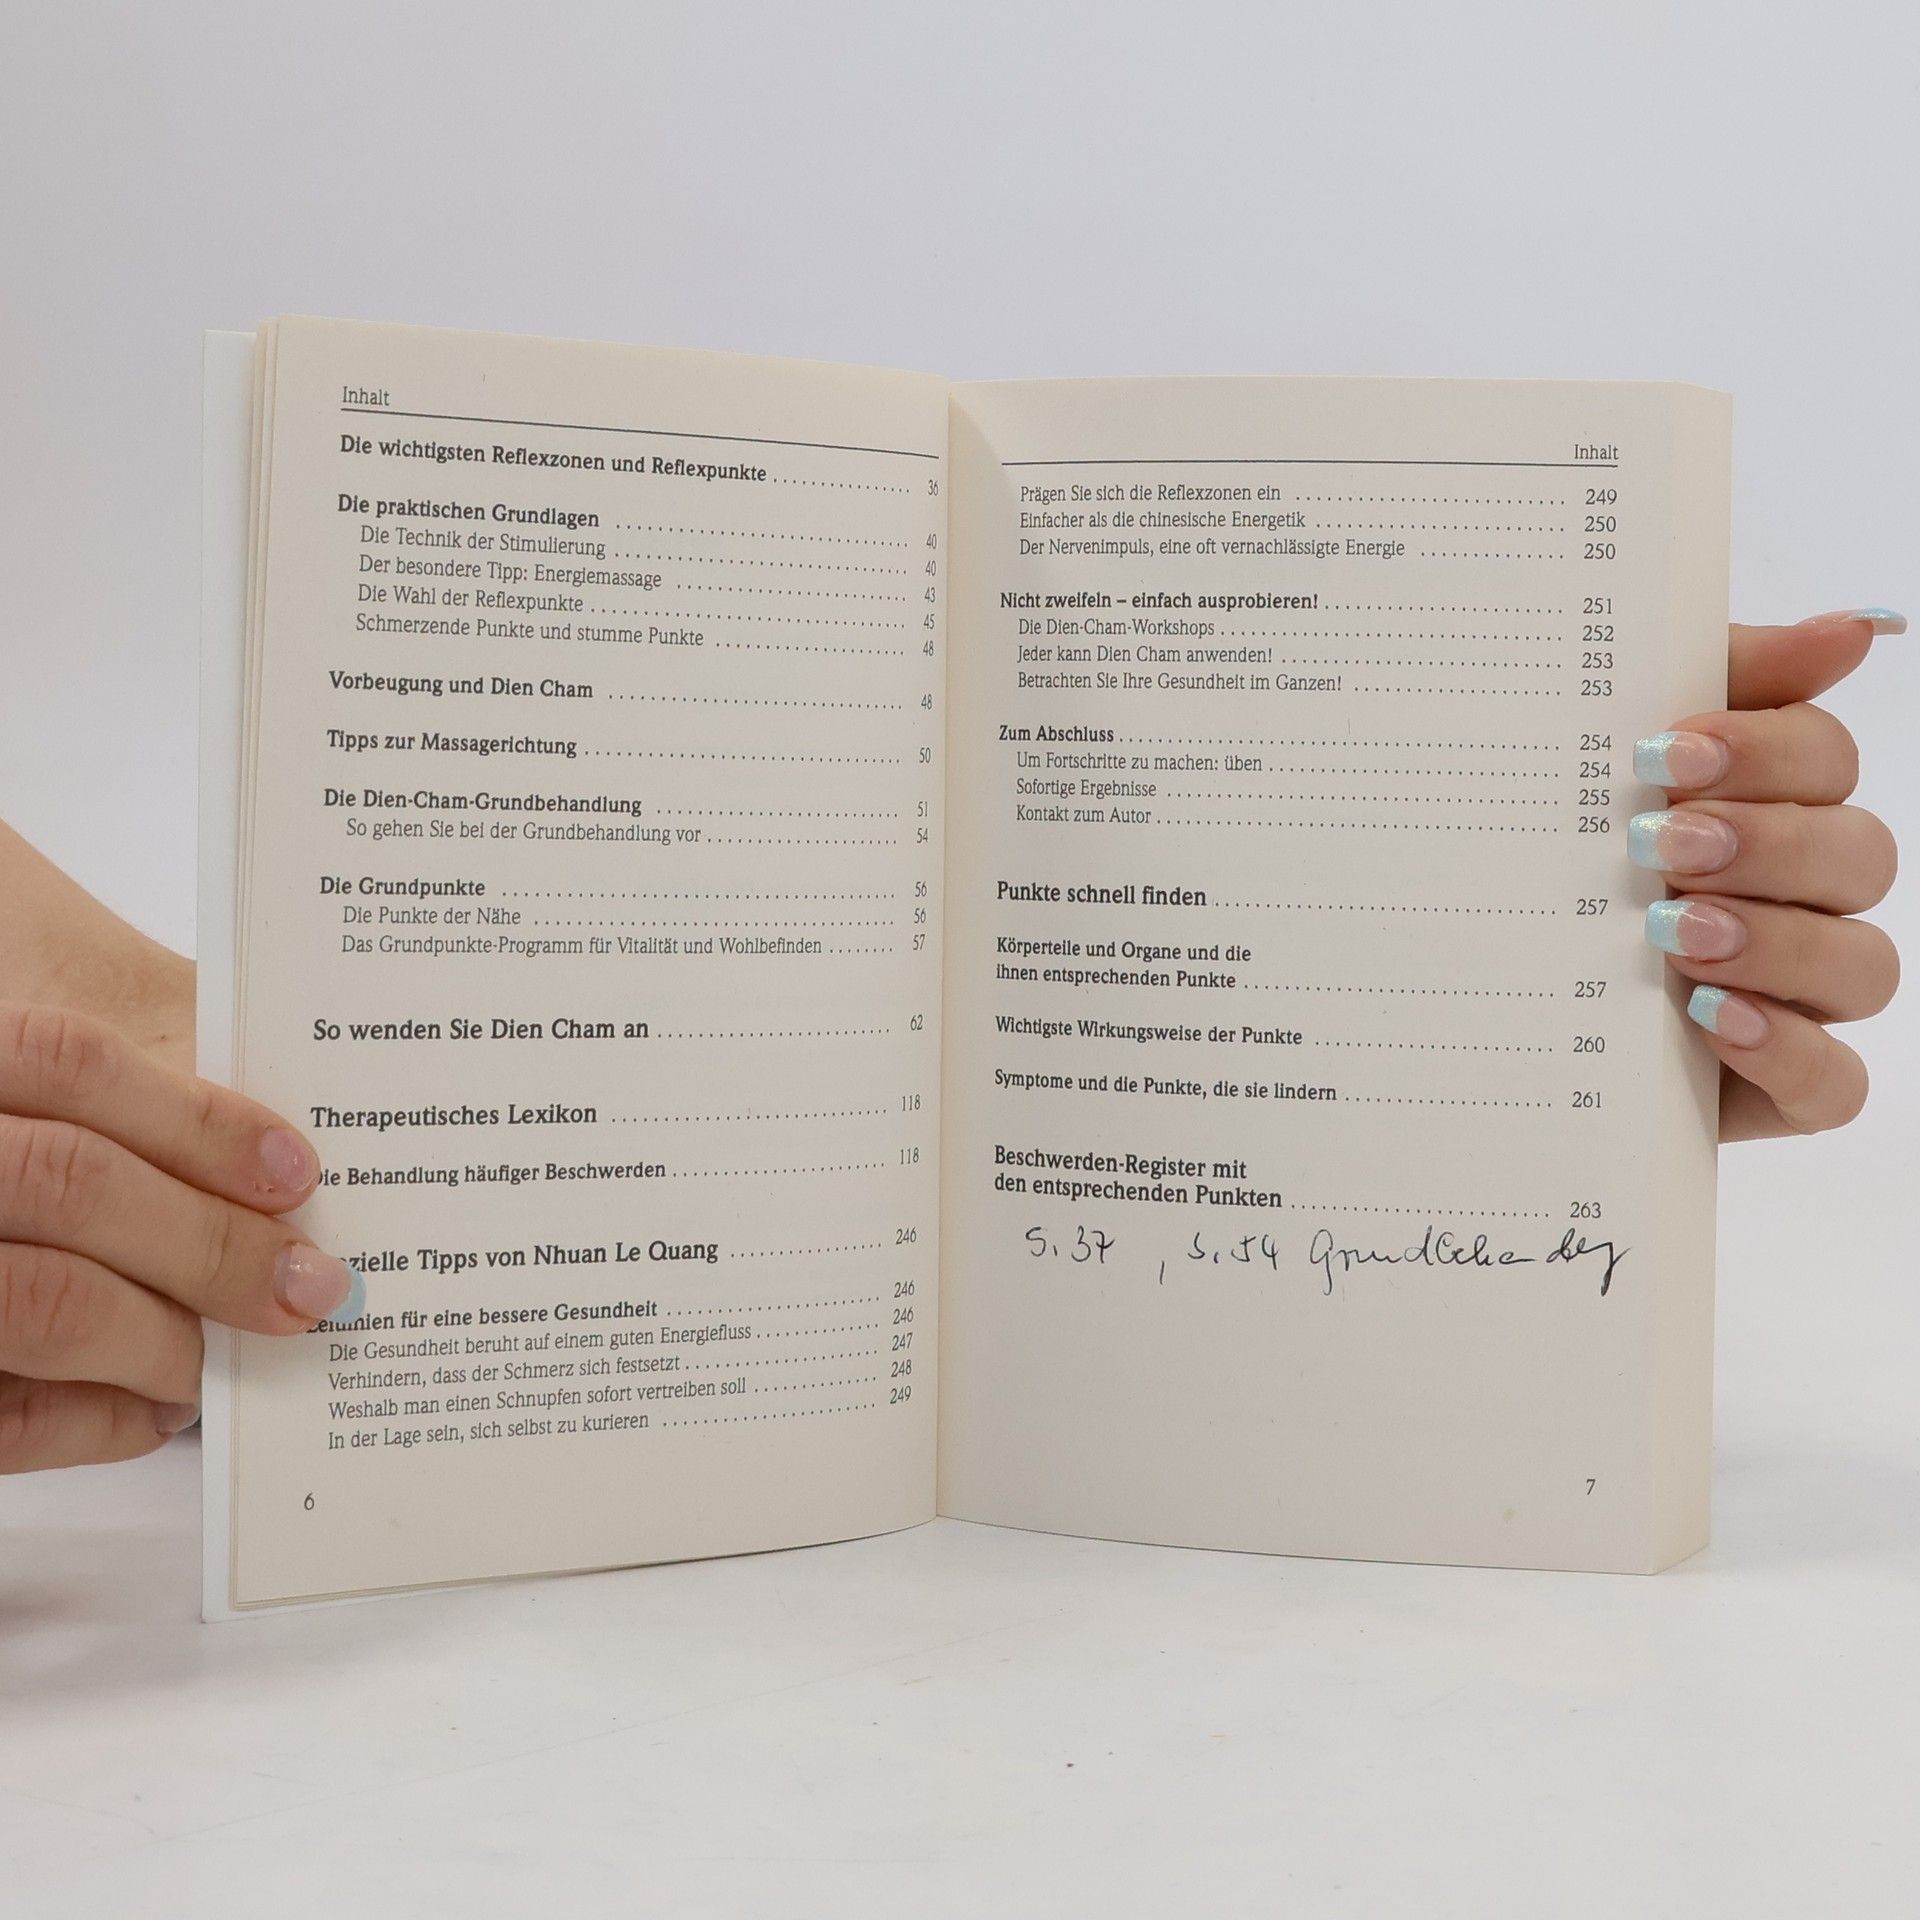 Inhalt
Die wichtigsten Reflexzonen und Reflexpunkte ................ 36
Die praktischen Grundlagen ................ 40
Die Technik der Stimulierung ................ 40
Der besondere Tipp: Energiemassage ................ 43
Die Wahl der Reflexpunkte ................ 45
Schmerzende Punkte und stumme Punkte ................ 48
Vorbeugung und Dien Cham ................ 48
Tipps zur Massagerichtung ................ 50
Die Dien-Cham-Grundbehandlung ................ 51
So gehen Sie bei der Grundbehandlung vor ................ 54
Die Grundpunkte ................ 56
Die Punkte der Nähe ................ 56
Das Grundpunkte-Programm für Vitalität und Wohlbefinden ........ 57
So wenden Sie Dien Cham an ................ 62
Therapeutisches Lexikon ................ 118
ie Behandlung häufiger Beschwerden ................ 118
zielle Tipps von Nhuan Le Quang ................ 246
Leitlinien für eine bessere Gesundheit ................ 246
Die Gesundheit beruht auf einem guten Energiefluss ................ 246
Verhindern, dass der Schmerz sich festsetzt ................ 247
Weshalb man einen Schnupfen sofort vertreiben soll ................ 248
In der Lage sein, sich selbst zu kurieren ................ 249
6
Inhalt
Prägen Sie sich die Reflexzonen ein ................ 249
Einfacher als die chinesische Energetik ................ 250
Der Nervenimpuls, eine oft vernachlässigte Energie ................ 250
Nicht zweifeln – einfach ausprobieren! ................ 251
Die Dien-Cham-Workshops ................ 252
Jeder kann Dien Cham anwenden! ................ 253
Betrachten Sie Ihre Gesundheit im Ganzen! ................ 253
Zum Abschluss ................ 254
Um Fortschritte zu machen: üben ................ 254
Sofortige Ergebnisse ................ 255
Kontakt zum Autor ................ 256
Punkte schnell finden ................ 257
Körperteile und Organe und die
ihnen entsprechenden Punkte ................ 257
Wichtigste Wirkungsweise der Punkte ................ 260
Symptome und die Punkte, die sie lindern ................ 261
Beschwerden-Register mit
den entsprechenden Punkten ................ 263
S. 37 , S. 54 Grundbehandlg
7